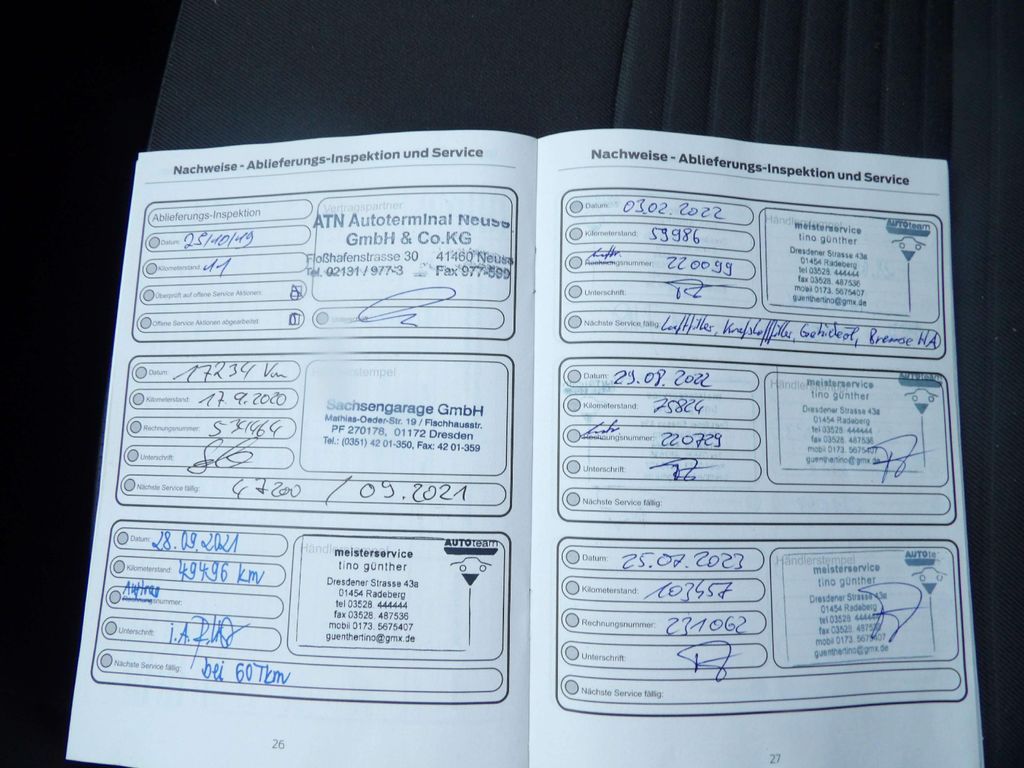 Nachweise - Ablieferungs-Inspektion und Service
Ablieferungs-Inspektion
Datum: 25/10/19
Kilometerstand: 11
Überprüft auf offene Service Aktionen:
Offene Service Aktionen abgearbeitet:
Vertragspartner
ATN Autoterminal Neuss
GmbH & Co.KG
Floßhafenstrasse 30 41460 Neuss
Tel. 02131 / 977-3 Fax 977-599
Unterschrift:
Datum: 17234 Km
Kilometerstand: 17.9.2020
Rechnungsnummer:
Unterschrift:
Nächste Service fällig: 47200 / 09.2021
Händlerstempel
Sachsengarage GmbH
Mathias-Oeder-Str. 19 / Fischhausstr.
PF 270178, 01172 Dresden
Tel.: (0351) 42 01-350, Fax: 42 01-359
Datum: 28.09.2021
Kilometerstand: 49496 km
Auftrag
Rechnungsnummer:
Unterschrift: i.A.
Nächste Service fällig: bei 60 Tkm
Händlerstempel
AUTOteam
meisterservice
tino günther
Dresdener Strasse 43a
01454 Radeberg
tel 03528. 444444
fax 03528. 487536
mobil 0173. 5675407
guenthertino@gmx.de
26
Nachweise - Ablieferungs-Inspektion und Service
Datum: 03.02.2022
Kilometerstand: 59986
Rechnungsnummer: 220099
Unterschrift:
Nächste Service fällig: Luftfilter, Kraftstofffilter, Getriebeöl, Bremse HA
Händlerstempel
AUTOteam
meisterservice
tino günther
Dresdener Strasse 43a
01454 Radeberg
tel 03528. 444444
fax 03528. 487536
mobil 0173. 5675407
guenthertino@gmx.de
Datum: 29.08.2022
Kilometerstand: 75824
Rechnungsnummer: 220729
Unterschrift:
Nächste Service fällig:
Händlerstempel
AUTOteam
meisterservice
tino günther
Dresdener Strasse 43a
01454 Radeberg
tel 03528. 444444
fax 03528. 487536
mobil 0173. 5675407
guenthertino@gmx.de
Datum: 25.07.2023
Kilometerstand: 103457
Rechnungsnummer: 231062
Unterschrift:
Nächste Service fällig:
Händlerstempel
AUTOte
meisterservice
tino günther
Dresdener Strasse 43a
01454 Radeberg
tel 03528. 444444
fax 03528. 48753
mobil 0173. 5675407
guenthertino@gmx.de
27